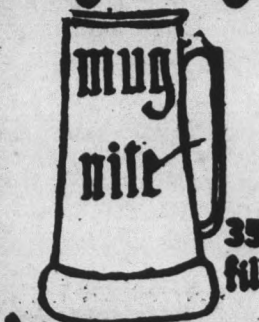 mug
nite
35
fil